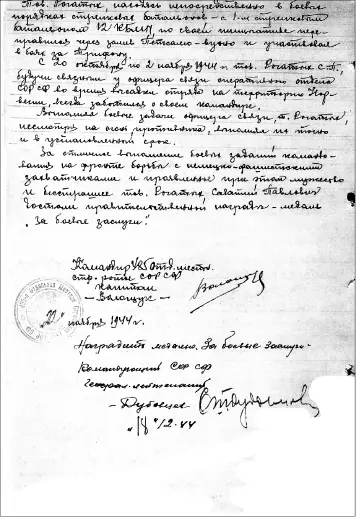 Тов. Рогаток, находясь непосредственно в боевых
порядках стрелковых батальонов - с 1-м стрелковым
батальоном 12 КБМП по своей инициативе пере-
правился через залив Петсамо-вуоно и участвовал
в боях за Трифону.
С 20 октября по 2 ноября 1944 г. тов. Рогаток С.П.,
будучи связным у офицера связи оперативного отдела
СОР СФ во время высадки отряда на территорию Нор-
вегии, всегда заботился о своем командире.
Выполняя боевые задачи офицера связи, т. Рогаток,
несмотря на огонь противника, выполнял их точно
и в установленный срок.
За отличное выполнение боевых заданий командо-
вания на фронте борьбы с немецко-фашистскими
захватчиками и проявленные при этом мужество
и бесстрашие тов. Рогаток Саватий Павлович
достоин правительственной награды - медаль
"За боевые заслуги".
Командир 485 Отд. местн.
стр. роты СОР СФ
капитан
- Волощук -
ноября 1944 г.
Наградить медалью "За боевые заслуги"
Командующий СОР СФ
Генерал-лейтенант
- Дубовцев
"18" 12.44